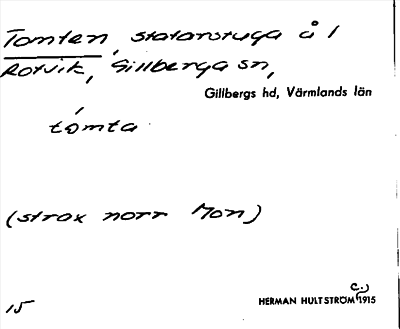 Tomten, statarstuga å 1
Rotvik, Gillberga sn,
Gillbergs hd, Värmlands län
tómta
(strax norr Mon)
c.)
15 HERMAN HULTSTRÖM 1915